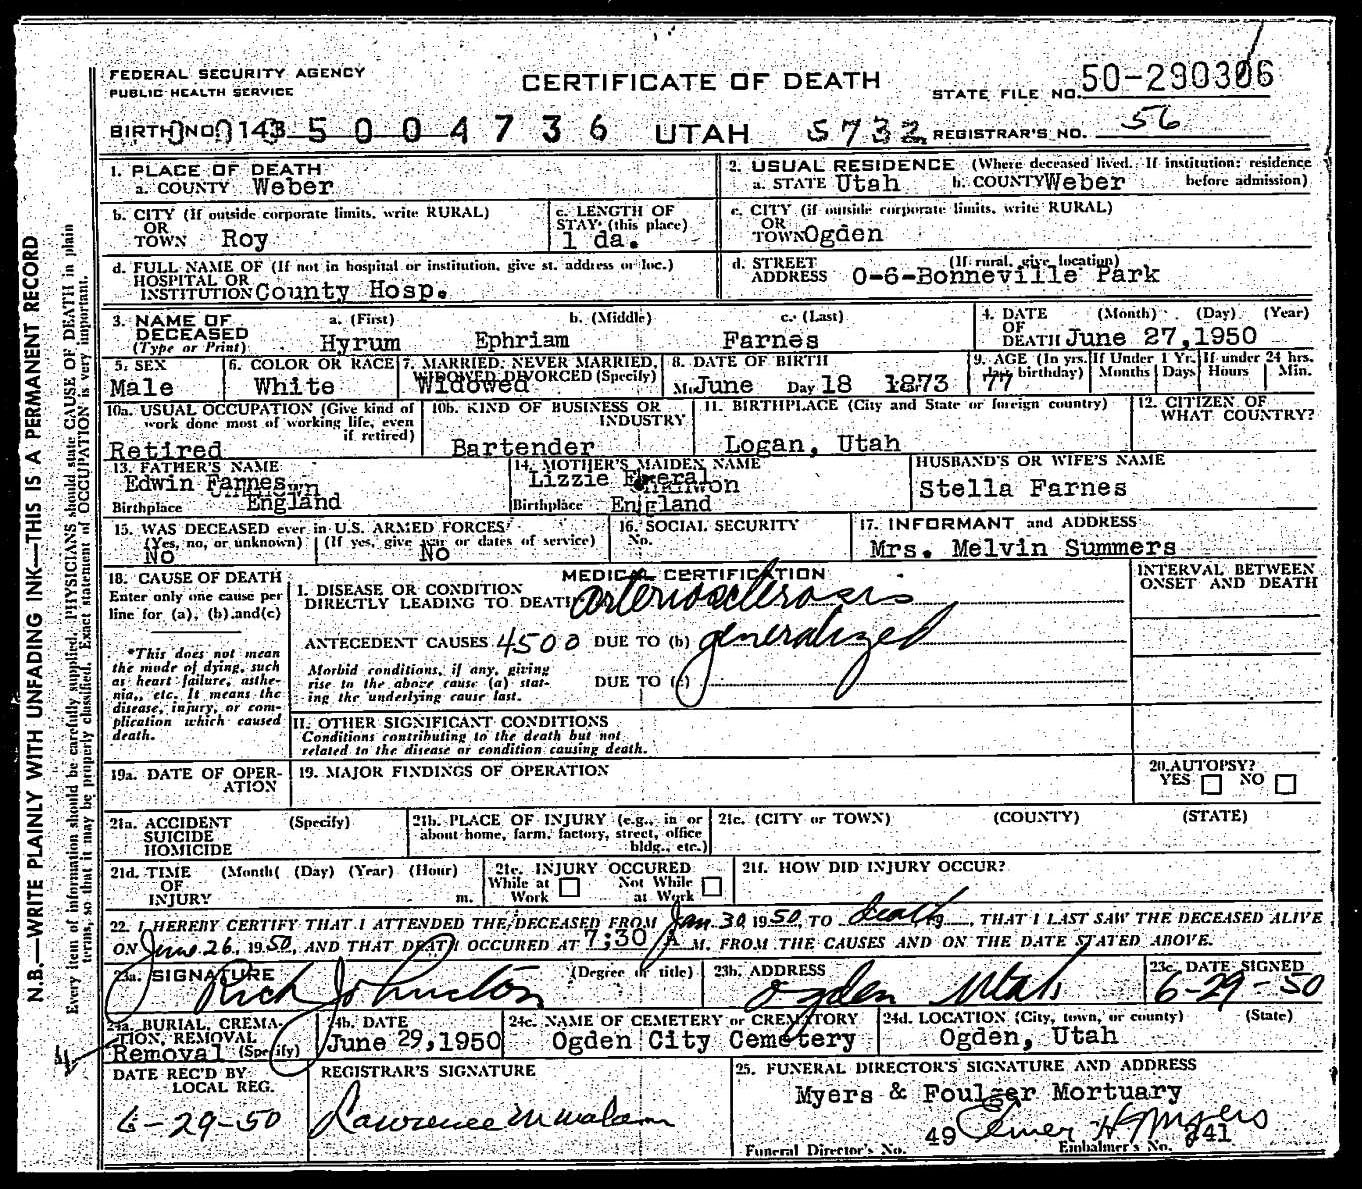 FEDERAL SECURITY AGENCY
PUBLIC HEALTH SERVICE
CERTIFICATE OF DEATH
STATE FILE NO. 50-290306
BIRTH NO. 0 0 143 5 0 0 4 7 3 6 UTAH 5732 REGISTRAR'S NO. 56
1. PLACE OF DEATH
a. COUNTY Weber
2. USUAL RESIDENCE (Where deceased lived. If institution: residence before admission)
a. STATE Utah b. COUNTY Weber
b. CITY (If outside corporate limits, write RURAL)
OR
TOWN Roy
c. LENGTH OF
STAY (this place)
1 da.
c. CITY (if outside corporate limits, write RURAL)
OR
TOWN Ogden
d. FULL NAME OF (If not in hospital or institution, give st. address or loc.)
HOSPITAL OR
INSTITUTION County Hosp.
d. STREET (If rural, give location)
ADDRESS 0-6-Bonneville Park
3. NAME OF
DECEASED
(Type or Print)
a. (First) b. (Middle) c. (Last)
Hyrum Ephriam Farnes
4. DATE (Month) (Day) (Year)
OF
DEATH June 27, 1950
5. SEX
Male
6. COLOR OR RACE
White
7. MARRIED, NEVER MARRIED,
WIDOWED, DIVORCED (Specify)
Widowed
8. DATE OF BIRTH
Mo. June Day 18 1873
9. AGE (In yrs. last birthday)
77
If Under 1 Yr. Months Days
If under 24 hrs. Hours Min.
10a. USUAL OCCUPATION (Give kind of
work done most of working life, even
if retired)
Retired
10b. KIND OF BUSINESS OR
INDUSTRY
Bartender
11. BIRTHPLACE (City and State or foreign country)
Logan, Utah
12. CITIZEN OF
WHAT COUNTRY?
13. FATHER'S NAME
Edwin Farnes
Birthplace England
14. MOTHER'S MAIDEN NAME
Lizzie
Birthplace England
HUSBAND'S OR WIFE'S NAME
Stella Farnes
15. WAS DECEASED ever in U.S. ARMED FORCES?
(Yes, no, or unknown) (If yes, give war or dates of service)
No No
16. SOCIAL SECURITY
No.
17. INFORMANT and ADDRESS
Mrs. Melvin Summers
18. CAUSE OF DEATH
Enter only one cause per
line for (a), (b) and (c)
*This does not mean
the mode of dying, such
as heart failure, asthe-
nia, etc. It means the
disease, injury, or com-
plication which caused
death.
MEDICAL CERTIFICATION
INTERVAL BETWEEN
ONSET AND DEATH
I. DISEASE OR CONDITION
DIRECTLY LEADING TO DEATH arteriosclerosis
ANTECEDENT CAUSES 4500 DUE TO (b) generalized
Morbid conditions, if any, giving
rise to the above cause (a) stat-
ing the underlying cause last.
DUE TO (c)
II. OTHER SIGNIFICANT CONDITIONS
Conditions contributing to the death but not
related to the disease or condition causing death.
19a. DATE OF OPER-
ATION
19. MAJOR FINDINGS OF OPERATION
20. AUTOPSY?
YES NO
21a. ACCIDENT (Specify)
SUICIDE
HOMICIDE
21b. PLACE OF INJURY (e.g., in or
about home, farm, factory, street, office
bldg., etc.)
21c. (CITY or TOWN) (COUNTY) (STATE)
21d. TIME (Month( (Day) (Year) (Hour)
OF
INJURY m.
21e. INJURY OCCURED
While at Work Not While at Work
21f. HOW DID INJURY OCCUR?
22. I HEREBY CERTIFY THAT I ATTENDED THE DECEASED FROM Jan 30, 1950, TO death, 19 , THAT I LAST SAW THE DECEASED ALIVE
ON June 26, 1950, AND THAT DEATH OCCURED AT 7:30 A M. FROM THE CAUSES AND ON THE DATE STATED ABOVE.
23a. SIGNATURE (Degree or title)
Rich Johnston
23b. ADDRESS
Ogden Utah
23c. DATE SIGNED
6-29-50
24a. BURIAL, CREMA-
TION, REMOVAL
Removal (Specify)
24b. DATE
June 29, 1950
24c. NAME OF CEMETERY or CREMTORY
Ogden City Cemetery
24d. LOCATION (City, town, or county) (State)
Ogden, Utah
DATE REC'D BY
LOCAL REG.
6-29-50
REGISTRAR'S SIGNATURE
Lawrence M Malan
25. FUNERAL DIRECTOR'S SIGNATURE AND ADDRESS
Myers & Foulger Mortuary
49 Elmer H Myers 841
Funeral Director's No. Embalmer's No.
N.B.—WRITE PLAINLY WITH UNFADING INK—THIS IS A PERMANENT RECORD
Every item of information should be carefully supplied. PHYSICIANS should state CAUSE OF DEATH in plain
terms, so that it may be properly classified. Exact statement of OCCUPATION is very important.